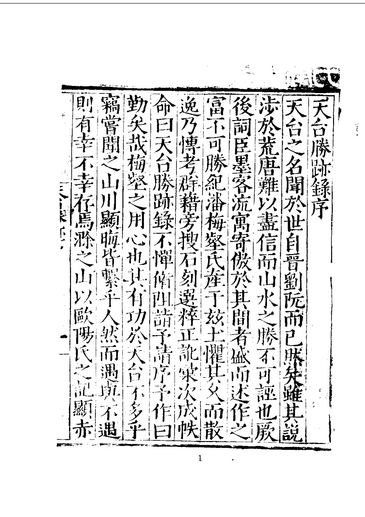 天台勝蹟錄序
天台之名聞於世自晉劉阮而已然矣雖其說
涉於荒唐難以盡信而山水之勝不可誣也厥
後詞臣墨客流寓寄傲於其間者盛而述作之
富不可勝紀潘梅壑氏產于玆土懼其久而散
逸乃博考群籍旁搜石刻選粹正訛彚次成帙
命曰天台勝蹟錄不憚衝阻請予請序予作曰
勤矣哉梅壑之用心也其有功於天台不多乎
竊嘗聞之山川顯晦皆繫乎人然而遇與不遇
則有幸不幸存焉滁之山以歐陽氏之記顯赤
1